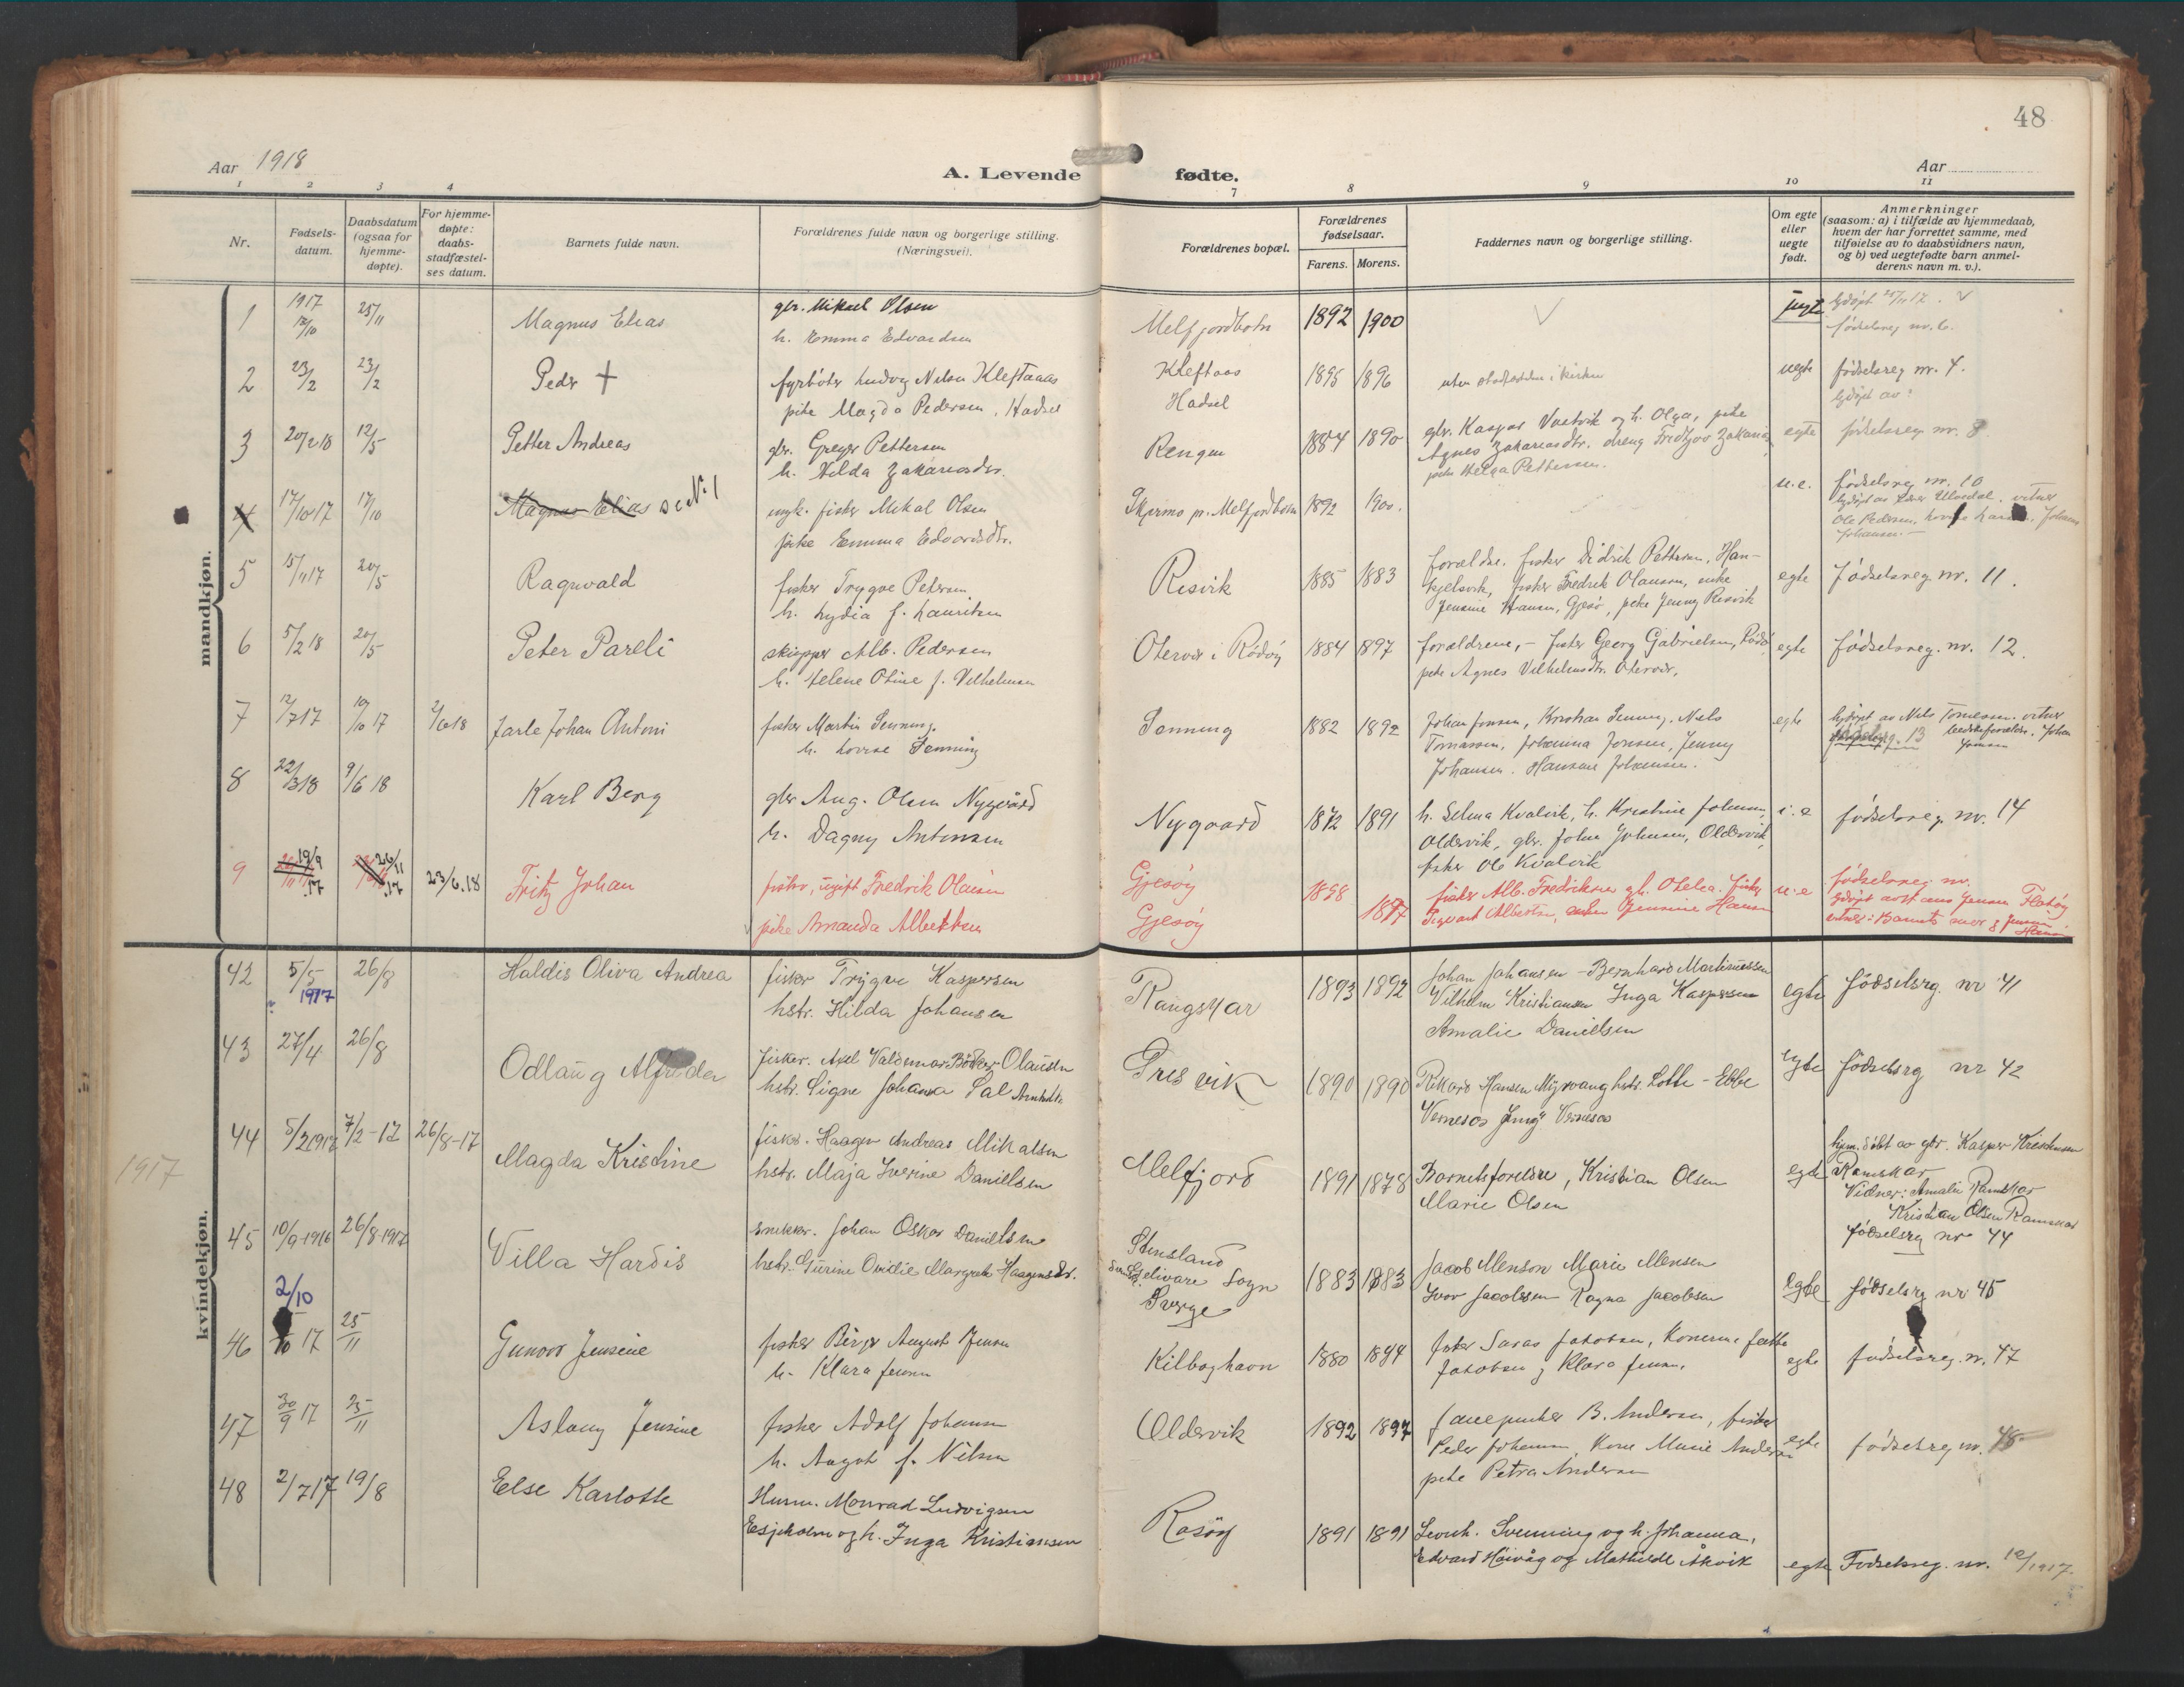 48
Aar 1918
A. Levende fødte.
Aar
1 2 3 4 7 8 9 10 11
Nr.
Fødsels-
datum.
Daabsdatum
(ogsaa for
hjemme-
døpte).
For hjemme-
døpte:
daabs-
stadfæstel-
ses datum.
Barnets fulde navn.
Forældrenes fulde navn og borgerlige stilling.
(Næringsvei).
Forældrenes bopæl.
Forældrenes
fødselsaar.
Farens. Morens.
Faddernes navn og borgerlige stilling.
Om egte
eller
uegte
født.
Anmerkninger
(saasom: a) i tilfælde av hjemmedaab,
hvem der har forrettet samme, med
tilføielse av to daabsvidners navn,
og b) ved uegtefødte barn anmel-
derens navn m. v.).
mandkjøn.
1 1917 25/11 Magnus Elias gbr. Mikael Olsen Melfjordbotn 1892 1900 hjdøpt 25/11 17. V
h. Emma Edvardsen fødselsreg nr. 6.
2 23/2 23/2 Peder + fyrbøter Ludvig Nilsen Kleftaas Kleftaas 1895 1896 uegte fødselsreg nr. 4.
pike Magda Pedersen, Hadsel Hadsel hjdøpt av:
3 20/2 18 12/5 Petter Andreas gbr. Greger Pettersen Rengen 1884 1890 gbr. Kaspar Vastvik og h. Olga, pike egte fødselsreg nr. 8
h. Hilda Zakariasdtr. Agnes Zakariasdtr. dreng Fredtjov Zakarias
pike Helga Pettersen.
4 17/10 17 17/10 Magnus Elias se Nr. 1 ungk. fisker Mikal Olsen Melfjordbotn 1892 1900. u.e. fødselsreg nr. 10
pike Emma Edvardsdtr. Ole Pedersen, Johan
Johansen.
5 15/11 17 20/5 Ragnvald fisker Trygve Petersen Resvik 1885 1883 forældre. fisker Didrik Pettersen, Han- egte fødselsreg nr. 11.
h. Lydia f. Lauritsen kjelsvik, fisker Fredrik Olausen, enke
Jensine Hansen, Gjesø, pike Jenny Resvik
6 5/2 18 20/5 Peter Pareli skipper Alb. Pedersen Otervær i Rødøy 1884 1897 forældrene, - fisker Georg Gabrielsen, Rødø egte fødselsreg. nr. 12.
h. Helene Oline f. Vilhelmsen pike Agnes Vilhelmsdtr. Otervær.
7 12/7 17 10/10 17 2/6 18 Jarle Johan Antoni fisker Martin Senning. Senning 1882 1892 Johan Jonsen, Kristian Senning. Nils egte hjdøpt av Nils Tomassen. vitner
h. Lovise Senning Tomassen, Johanna Jonsen, Jenny 13 bedsteforældre. Johan
Johansen. Hansine Johansen. Jonsen
8 22/3 18 9/6 18 Karl Berg gbr Aug. Olsen Nygaard Nygaard 1872 1891 h. Selma Kvalvik, h. Kristine Johnsen, fødselsreg. nr. 14
h. Dagny Antonsen Oldervik, gbr. Johan Johnsen, Oldervik,
fisker Ole Kvalvik
9 19/9 17 26/11 17 23/6.18 Fritz Johan fisker, ugift Fredrik Olausen Gjesøy 1898 1897 fisker Alb. Fredriksen og h. Otelea. fisker u.e fødselsreg. nr.
pike Amanda Albertsen Gjesøy Sigvart Albertsen, enken Jensine Hansen hjdøpt av Jensen Flatøy
vitner: Barnets mor & Jensine Hansen
kvindekjøn.
42 5/5 1917 26/8 Haldis Oliva Andrea fisker Trygve Kaspersen Rangskar 1893 1892 Johan Johansen - Bernhard Martinussen egte fødselsrg. nr 41
hstr. Hilda Johansen Vilhelm Kristiansen Inga Kaspersen
Amalie Danielsen
43 27/4 26/8 Odlaug Alfreda fisker. Axel Valdemar Bødker Olausen Gresvik 1890 1890 Rikard Hansen Myrvang hstr. Lotte - Ebbe egte fødselsrg nr 42
hstr. Signe Johanna Sal Arntsdtr. Vernesos Jenny Vernesos
1917
44 5/2 1917 7/2-17 26/8-17 Magda Kristine fisker. Haagen Andreas Mikalsen Melfjord 1891 1878 Barnets forældre, Kristian Olsen egte hjem.døbt av gbr. Kasper Kristensen
hstr. Maja Iverine Daniellsen Marie Olsen Ramskar
Vidner: Amalie Ramskar
Kristian Olsen Ramskar
fødselsrg nr 44
45 10/9-1916 26/8-1917 Villa Hardis snekker. Johan Oskar Daniellsen Stensland 1883 1883 Jacob Menson Marie Mensen egte fødselsrg nr 45
hstr. Gurine Ovidie Margrete Haagensdr. Gelivare Sogn Ivar Jacobsen Ragna Jacobsen
Sverge
2/10
46 10 17 25/11 Gunvor Jensine fisker Birger August Jensen Kilboghavn 1880 1894 fisker Saras Jakobsen, Konerne Jakobsen og Klara Jensen. egte fødselsreg. nr. 47
h. Klara Jensen
47 30/9 17 25/11 Aslaug Jensine fisker Adolf Johansen Oldervik 1892 1897 B. Andersen, fisker egte fødselsreg nr. 48
h. Aagot f. Nilsen Peder Johansen, Kone Marie Andersen
pike Petra Andersen
48 2/7 17 19/8 Else Karlotte Husm. Monrad Ludvigsen Rasøy 1891 1891 Leonh. Svenning og h. Johanna,
Esjeholm og h. Inga Kristiansen Edvard Høivåg og Mathilde Åkvik egte Fødselsreg. nr. 10/1917.